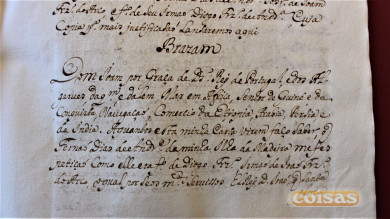 Arz.º do Arco e f.º de Seu Irmaõ Diogo Frz.º de Andr.e Cuja
Copia p.ª mais justificasaõ Lansaremos aqui
Brazam
Dom Joam por Graça de D.s Rey de Portugal e dos Al
garues daq m.e dalem Mar em Africa Senhor de Guiné e da
Conquista, Nauegaçaõ, Comercio da Ethiopia, Arabia, Persia e
da India. Aquantos esta minha Carta virem faço Saber q̃
Fernaõ Dias de Andr.e da minha Ilha da Madeira me fes
petiçaõ Como elle era f.º de Diogo Frz.º Irmaõ de Joaõ Frz.º
do Arco o qual por Seos m.tos Seruissos
coisas